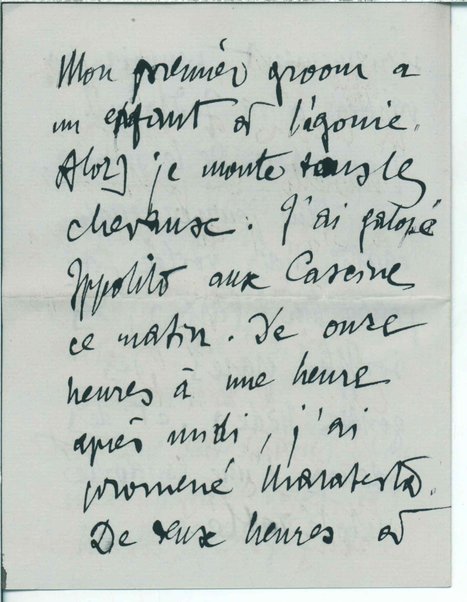 Mon premier groom a
un enfant à l'agonie.
Alors je monte tous les
chevaux. J'ai galopé
Ippolito aux Cascine
ce matin. De onze
heures à une heure
après midi, j'ai
promené Malatesta.
De deux heures à